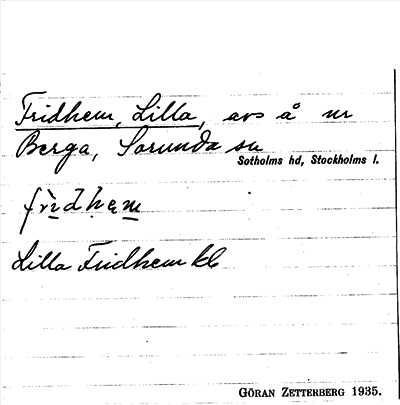 Fridhem, Lilla, avs å nr
Berga, Sorunda sn
Sotholms hd, Stockholms l.
frìdhęm
Lilla Fridhem kk
GÖRAN ZETTERBERG 1935.